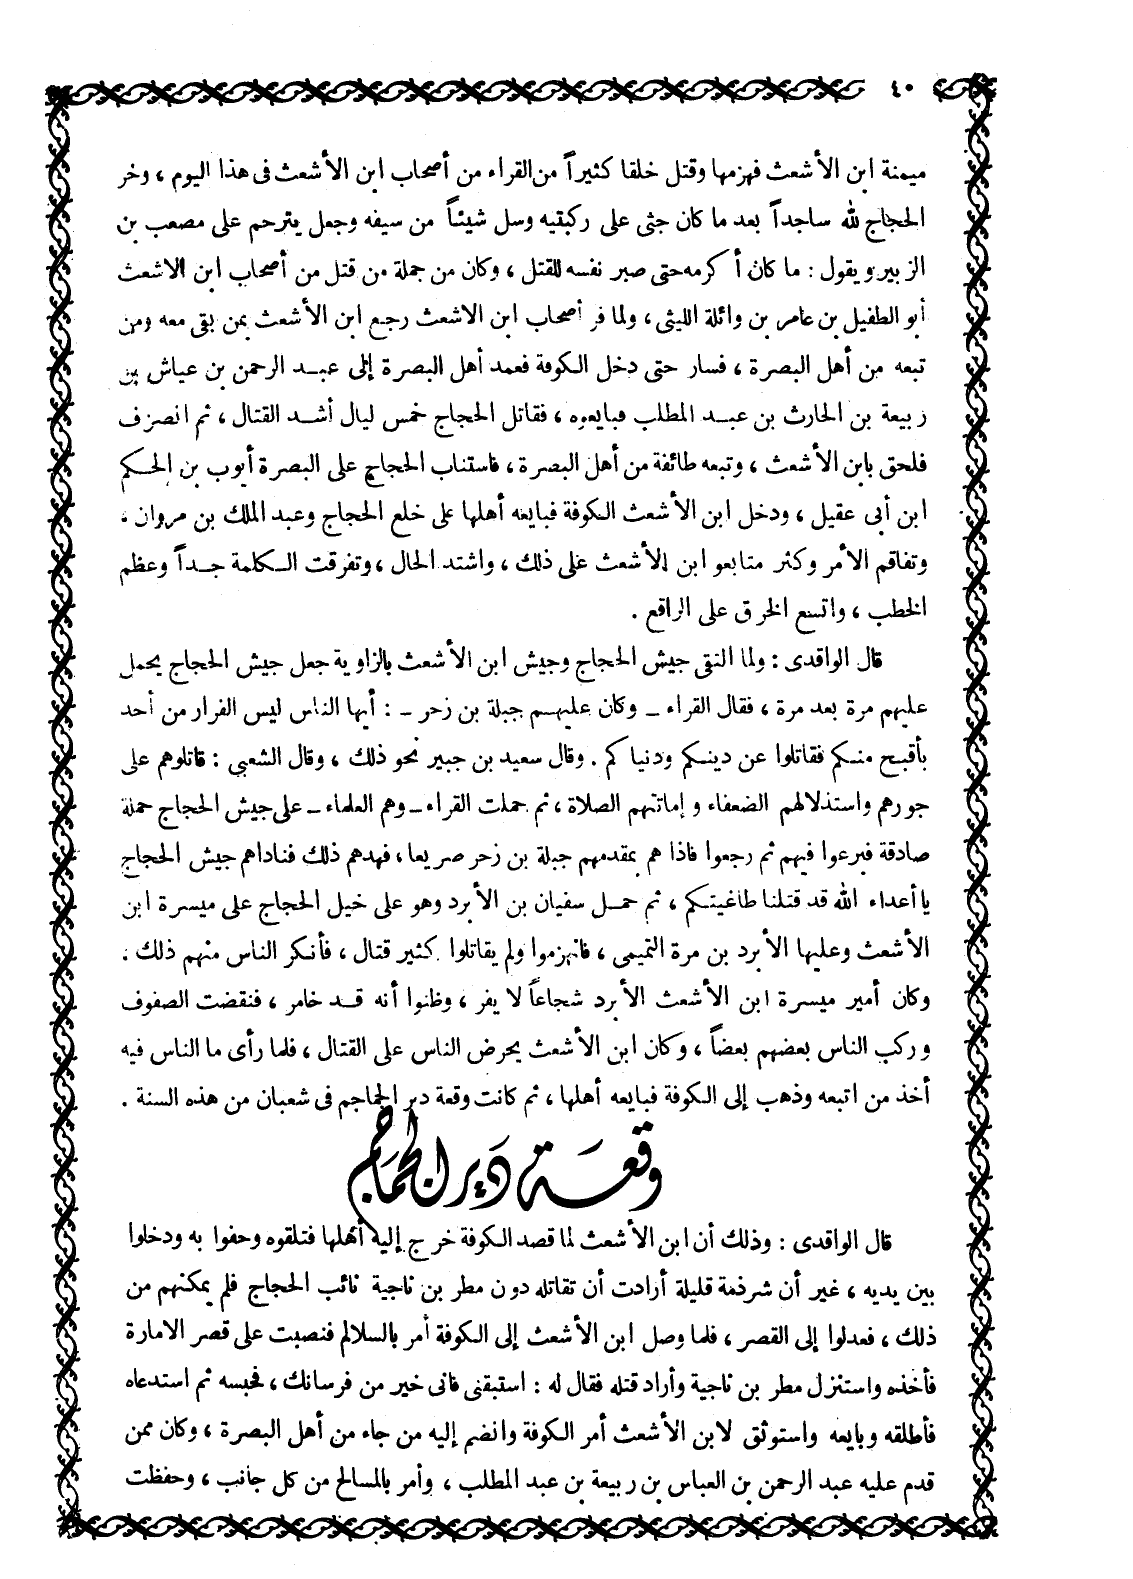 ٤٠
ميمنة ابن الأشعث فهزمها وقتل خلقا كثيراً من القراء من أصحاب ابن الأشعث فى هذا اليوم ، وخر
الحجاج لله ساجداً بعد ما كان جثى على ركبتيه وسل شيئاً من سيفه وجعل يترحم على مصعب بن
الزبير ويقول : ما كان أكرمه حتى صبر نفسه للقتل ، وكان من جملة من قتل من أصحاب ابن الاشعث
أبو الطفيل بن عامر بن وائلة الليثى ، ولما فر أصحاب ابن الاشعث رجع ابن الأشعث بمن بقى معه ومن
تبعه من أهل البصرة ، فسار حتى دخل الكوفة فعمد أهل البصرة إلى عبد الرحمن بن عياش بن
ربيعة بن الحارث بن عبد المطلب فبايعوه ، فقاتل الحجاج خمس ليال أشد القتال ، ثم انصرف
فلحق بابن الأشعث ، وتبعه طائفة من أهل البصرة ، فاستناب الحجاج على البصرة أيوب بن الحكم
ابن أبى عقيل ، ودخل ابن الأشعث الكوفة فبايعه أهلها على خلع الحجاج وعبد الملك بن مروان ،
وتفاقم الأمر وكثر متابعو ابن الأشعث على ذلك ، واشتد الحال ، وتفرقت الكلمة جداً وعظم
الخطب ، واتسع الخرق على الراقع .
قال الواقدى : ولما التقى جيش الحجاج وجيش ابن الأشعث بالزاوية جعل جيش الحجاج يحمل
عليهم مرة بعد مرة ، فقال القراء ـ وكان عليهم جبلة بن زحر ـ : أيها الناس ليس الفرار من أحد
بأقبح منكم فقاتلوا عن دينكم ودنياكم . وقال سعيد بن جبير نحو ذلك ، وقال الشعبي : قاتلوهم على
جورهم واستذلالهم الضعفاء وإماتتهم الصلاة ، ثم حملت القراء ـ وهم العلماء ـ على جيش الحجاج حملة
صادقة فبرعوا فيهم ثم رجعوا فاذا هم بمقدمهم جبلة بن زحر صريعا ، فهدهم ذلك فناداهم جيش الحجاج
يا أعداء الله قد قتلنا طاغيتكم ، ثم حمل سفيان بن الأبرد وهو على خيل الحجاج على ميسرة ابن
الأشعث وعليها الأبرد بن مرة التميمى ، فانهزموا ولم يقاتلوا كثير قتال ، فأنكر الناس منهم ذلك .
وكان أمير ميسرة ابن الأشعث الأبرد شجاعاً لا يفر ، وظنوا أنه قد خامر ، فنقضت الصفوف
وركب الناس بعضهم بعضاً ، وكان ابن الأشعث يحرض الناس على القتال ، فلما رأى ما الناس فيه
أخذ من اتبعه وذهب إلى الكوفة فبايعه أهلها ، ثم كانت وقعة دير الجماجم فى شعبان من هذه السنة .
وقعَة دَير الجَمَاجم
قال الواقدى : وذلك أن ابن الأشعث لما قصد الكوفة خرج إليه أهلها فتلقوه وحفوا به ودخلوا
بين يديه ، غير أن شرذمة قليلة أرادت أن تقاتله دون مطر بن ناجية نائب الحجاج فلم يمكنهم من
ذلك ، فعدلوا إلى القصر ، فلما وصل ابن الأشعث إلى الكوفة أمر بالسلالم فنصبت على قصر الامارة
فأخذه واستنزل مطر بن ناجية وأراد قتله فقال له : استبقنى فانى خير من فرسانك ، فحبسه ثم استدعاه
فأطلقه وبايعه واستوثق لابن الأشعث أمر الكوفة وانضم إليه من جاء من أهل البصرة ، وكان ممن
قدم عليه عبد الرحمن بن العباس بن ربيعة بن عبد المطلب ، وأمر بالمسالح من كل جانب ، وحفظت